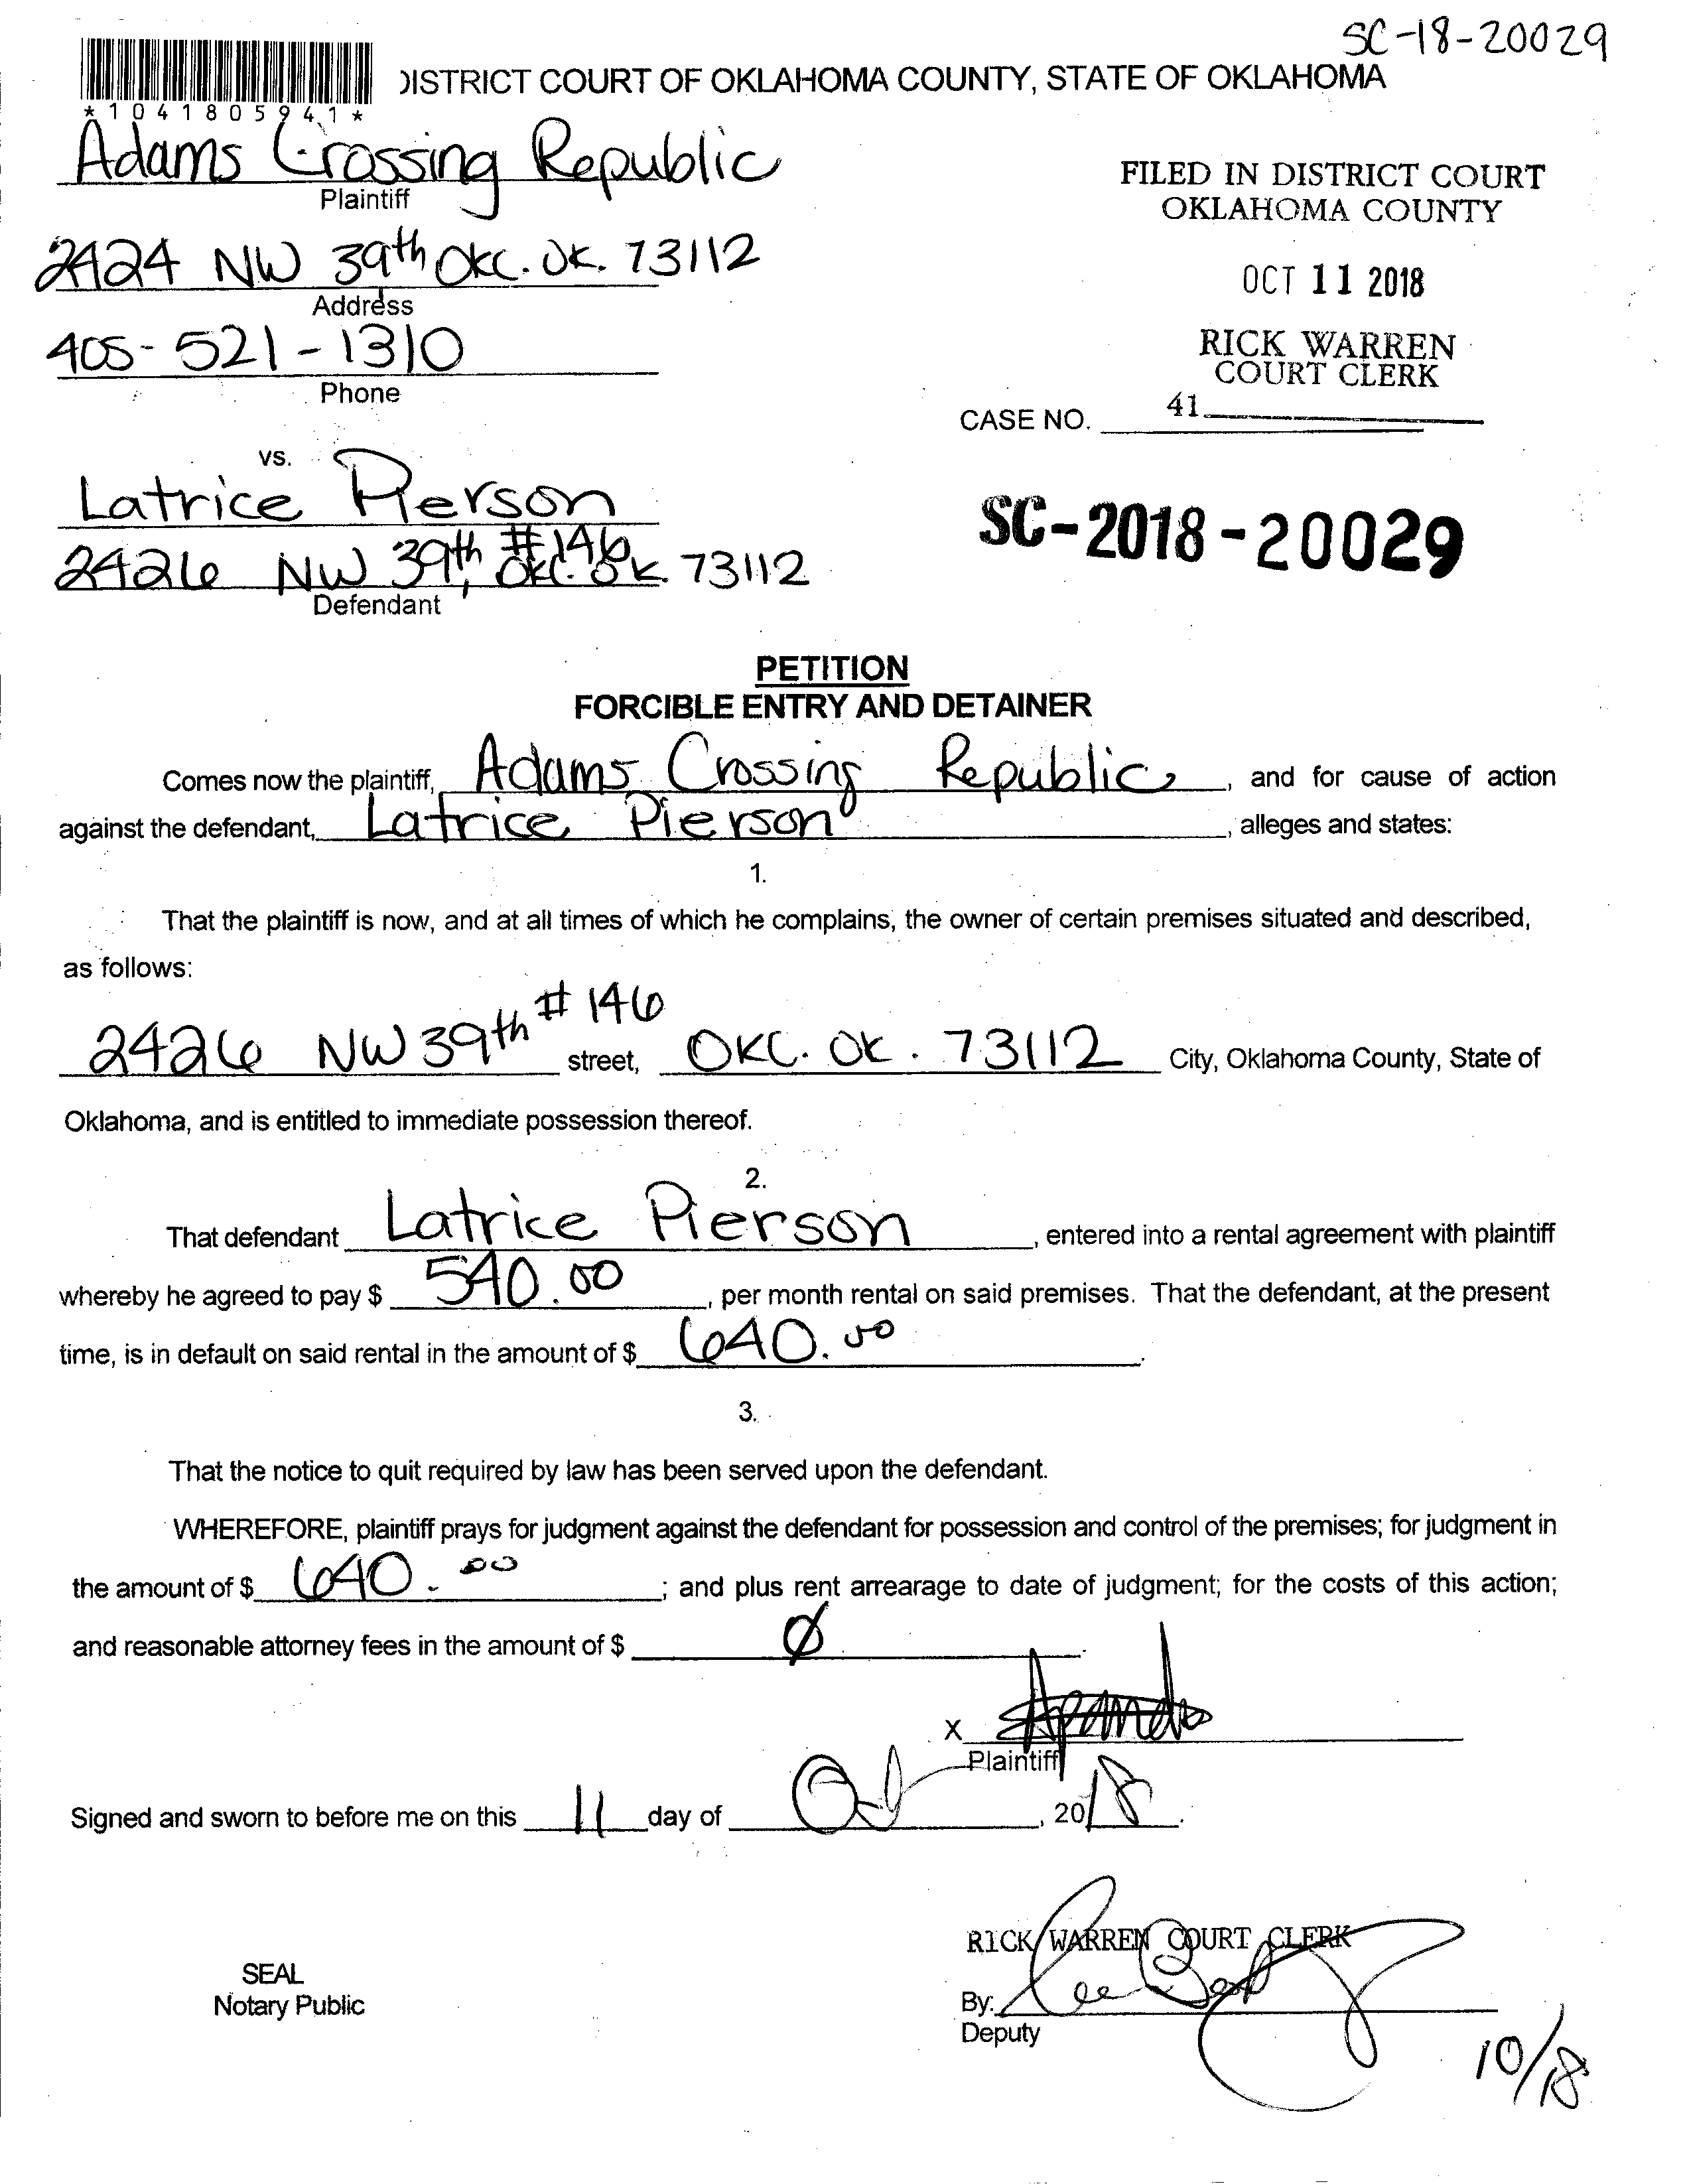 SC-18-20029
DISTRICT COURT OF OKLAHOMA COUNTY, STATE OF OKLAHOMA
*1041805941*
Adams Crossing Republic
Plaintiff
FILED IN DISTRICT COURT
OKLAHOMA COUNTY
2424 NW 39th OKC. OK. 73112
Address
OCT 11 2018
405-521-1310
Phone
RICK WARREN
COURT CLERK
CASE NO. 41
vs.
Latrice Pierson
2426 NW 39th, #146 OKC. OK. 73112
Defendant
SC-2018-20029
PETITION
FORCIBLE ENTRY AND DETAINER
Comes now the plaintiff, Adams Crossing Republic, and for cause of action
against the defendant, Latrice Pierson, alleges and states:
1.
That the plaintiff is now, and at all times of which he complains, the owner of certain premises situated and described,
as follows:
2426 NW 39th #146 street, OKC. OK. 73112 City, Oklahoma County, State of
Oklahoma, and is entitled to immediate possession thereof.
2.
That defendant Latrice Pierson, entered into a rental agreement with plaintiff
whereby he agreed to pay $ 540.00, per month rental on said premises. That the defendant, at the present
time, is in default on said rental in the amount of $ 640.00.
3.
That the notice to quit required by law has been served upon the defendant.
WHEREFORE, plaintiff prays for judgment against the defendant for possession and control of the premises; for judgment in
the amount of $ 640.00; and plus rent arrearage to date of judgment; for the costs of this action;
and reasonable attorney fees in the amount of $ Ø.
X
Plaintiff
Signed and sworn to before me on this 11 day of Oct, 2018.
RICK WARREN COURT CLERK
SEAL
Notary Public
By:
Deputy
10/18